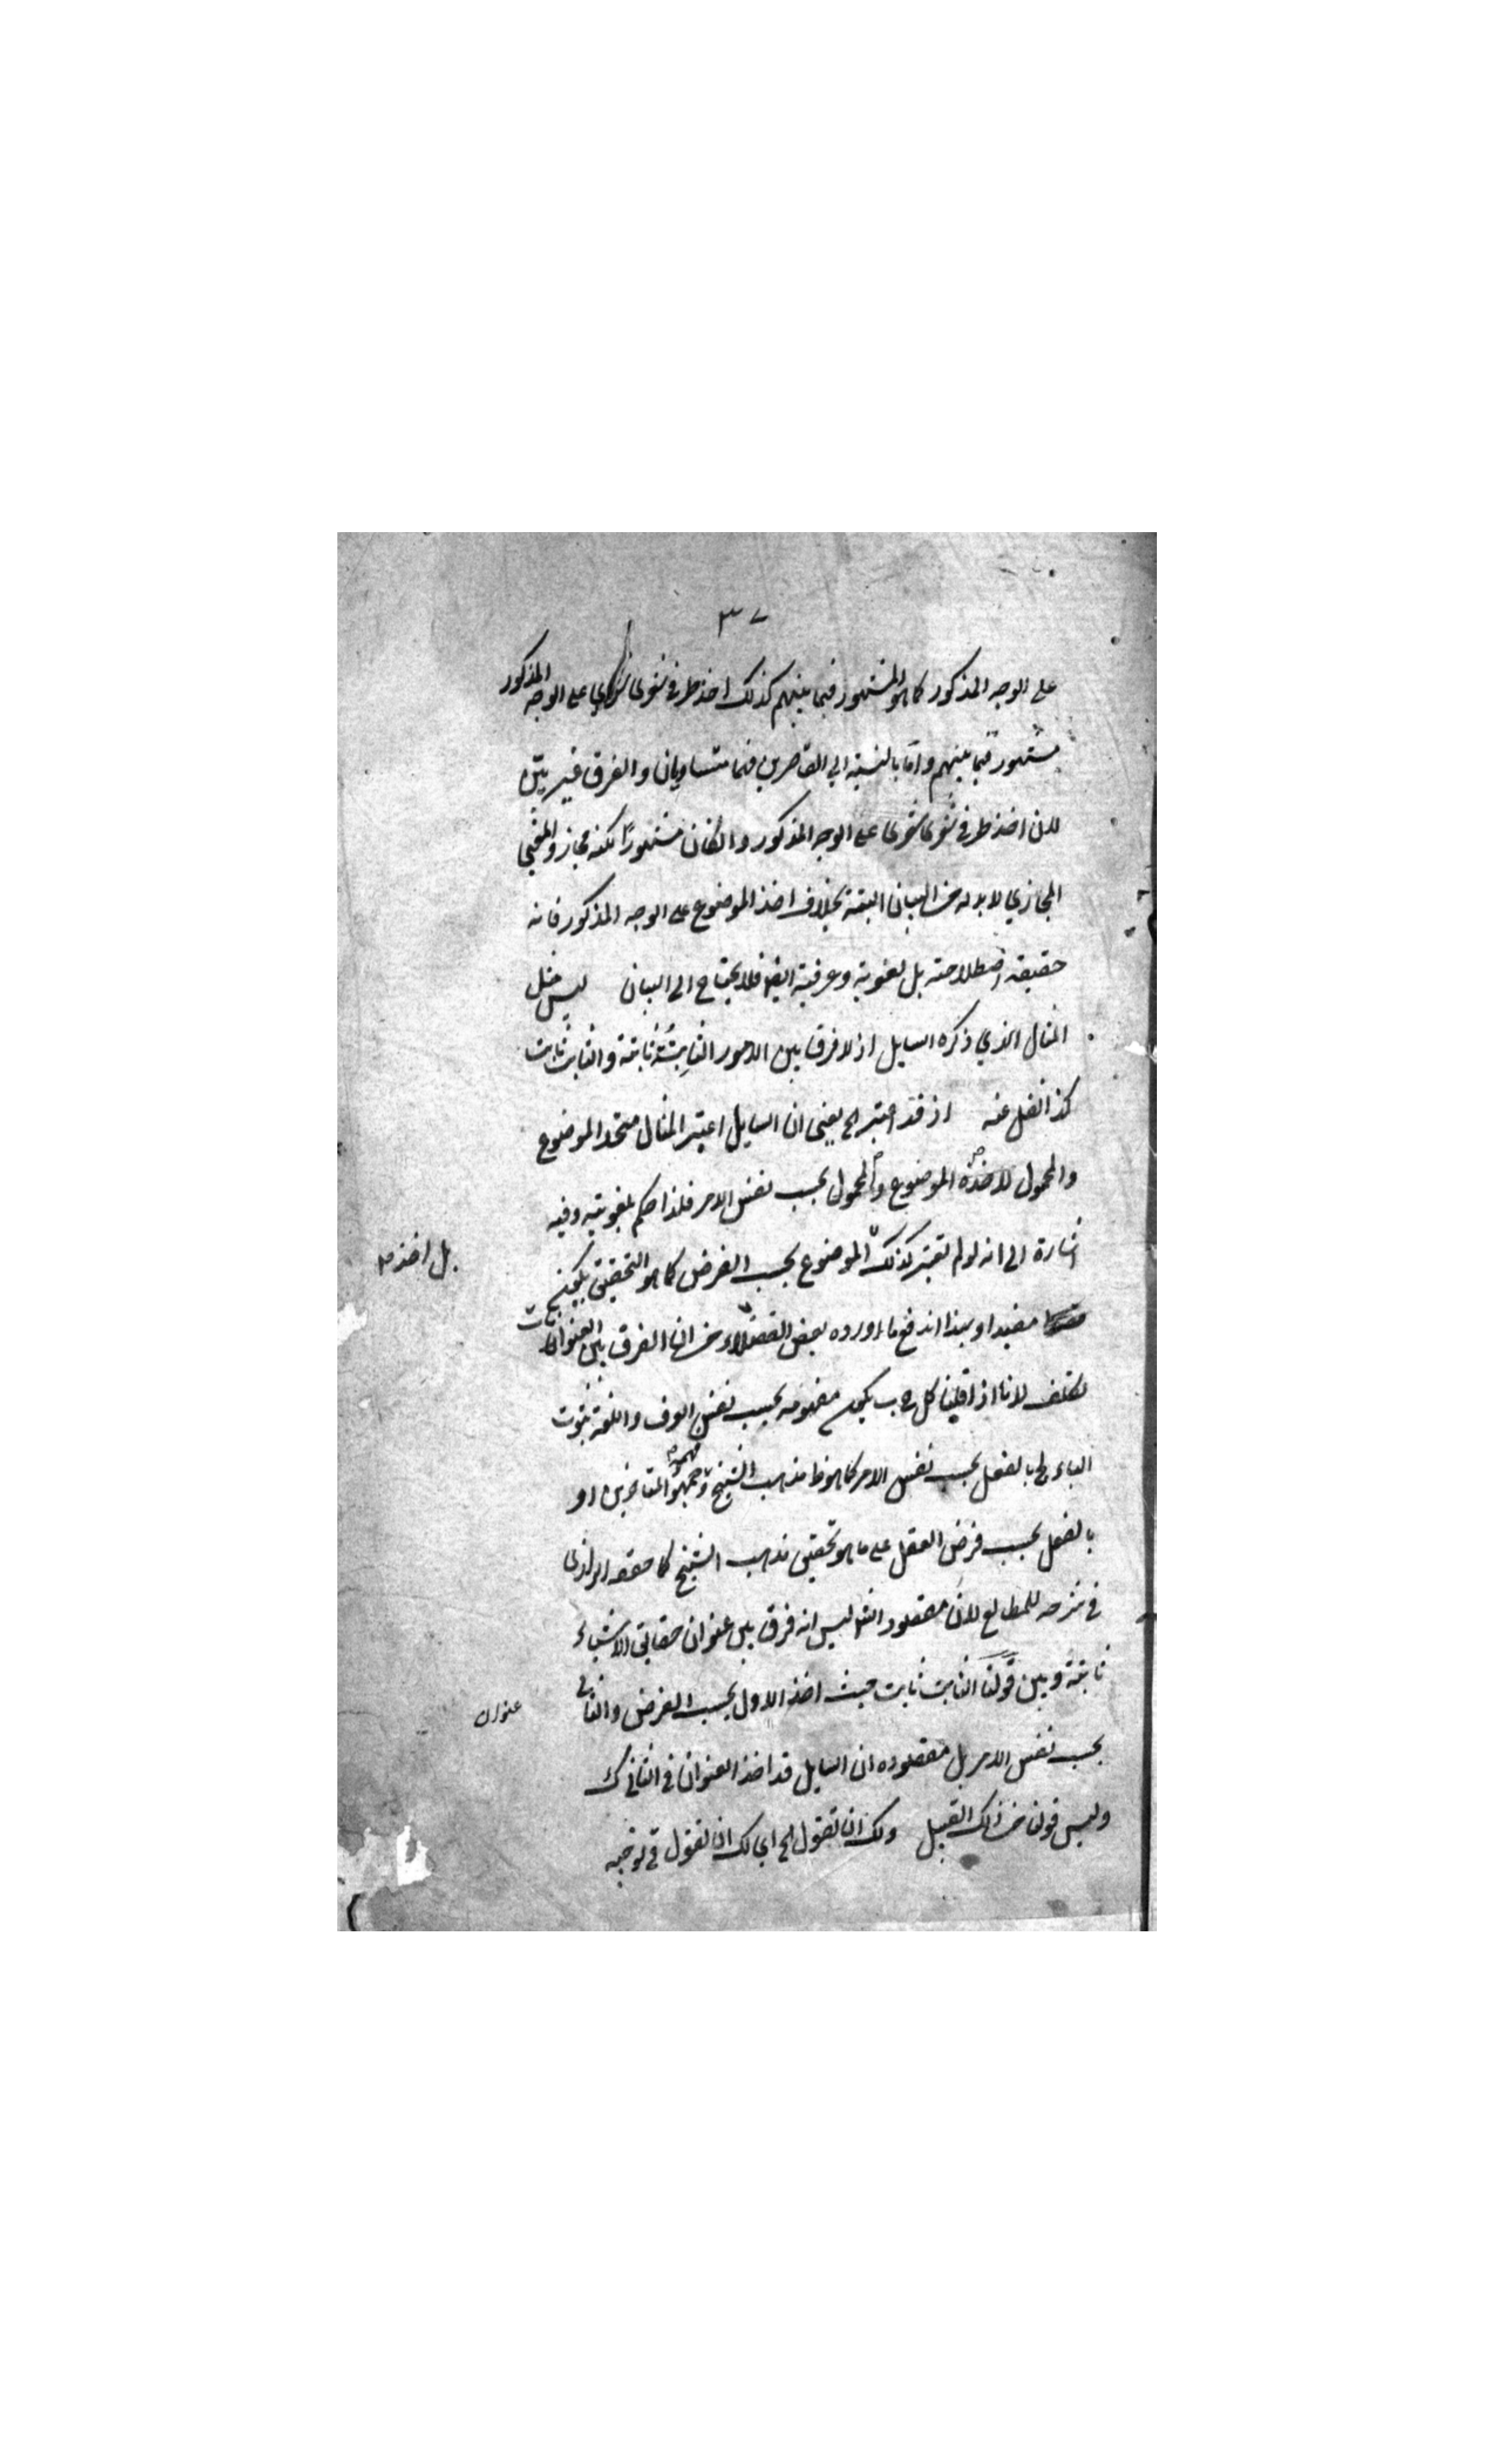 ٣٧
على الوجه المذكور كما هو المشهور فيما بينهم كذلك اخذ طرفي شعري شعري على الوجه المذكور
مشهور فيما بينهم واما بالنسبة الى القاصرين فهما متساويان والفرق غير بين
لان اخذ طرفي شعري شعري على الوجه المذكور وان كان مشهورا لكنه مجاز والمعنى
المجازي لا بد له من البيان البتة بخلاف اخذ الموضوع على الوجه المذكور فانه
حقيقة اصطلاحية بل لغوية وعرفية ايضا فلا يحتاج الى البيان ليس مثل
المثال الذي ذكره السايل اذ لا فرق بين الامور الثابتة ثابتة والثابت ثابت
كذا نقل عنه اذ قد اعتبر الخ يعني ان السايل اعتبر المثال متحد الموضوع
والمحمول لاخذه الموضوع والمحمول بحسب نفس الامر فلذا حكم بلغويته وفيه
اشارة الى انه لو لم يعتبر كذلك الموضوع بحسب الفرض كما هو التحقيق يكون
بل اخذ
مفيدا وبهذا اندفع ما اورده بعض الفضلاء من ان الفرق بين العنوانات
تكلف لانا اذا قلنا كل ج ب يكون مفهومه بحسب نفس العرف واللغة ثبوت
الباء لج بالفعل بحسب نفس الامر كما هو ظ مذهب الشيخ وجمهور المتاخرين او
بالفعل بحسب فرض العقل على ما هو تحقيق مذهب الشيخ كما حققه الرازي
في شرحه للمطالع لان مقصود الش ليس انه فرق بين عنوان حقايق الاشياء
ثابتة وبين قولنا الثابت ثابت حيث اخذ الاول بحسب الفرض والثاني
عنوان
بحسب نفس الامر بل مقصوده ان السايل قد اخذ العنوان في الثاني ك
وليس قولنا من ذلك القبيل ولك ان تقول الخ اي لك ان تقول في توجيه